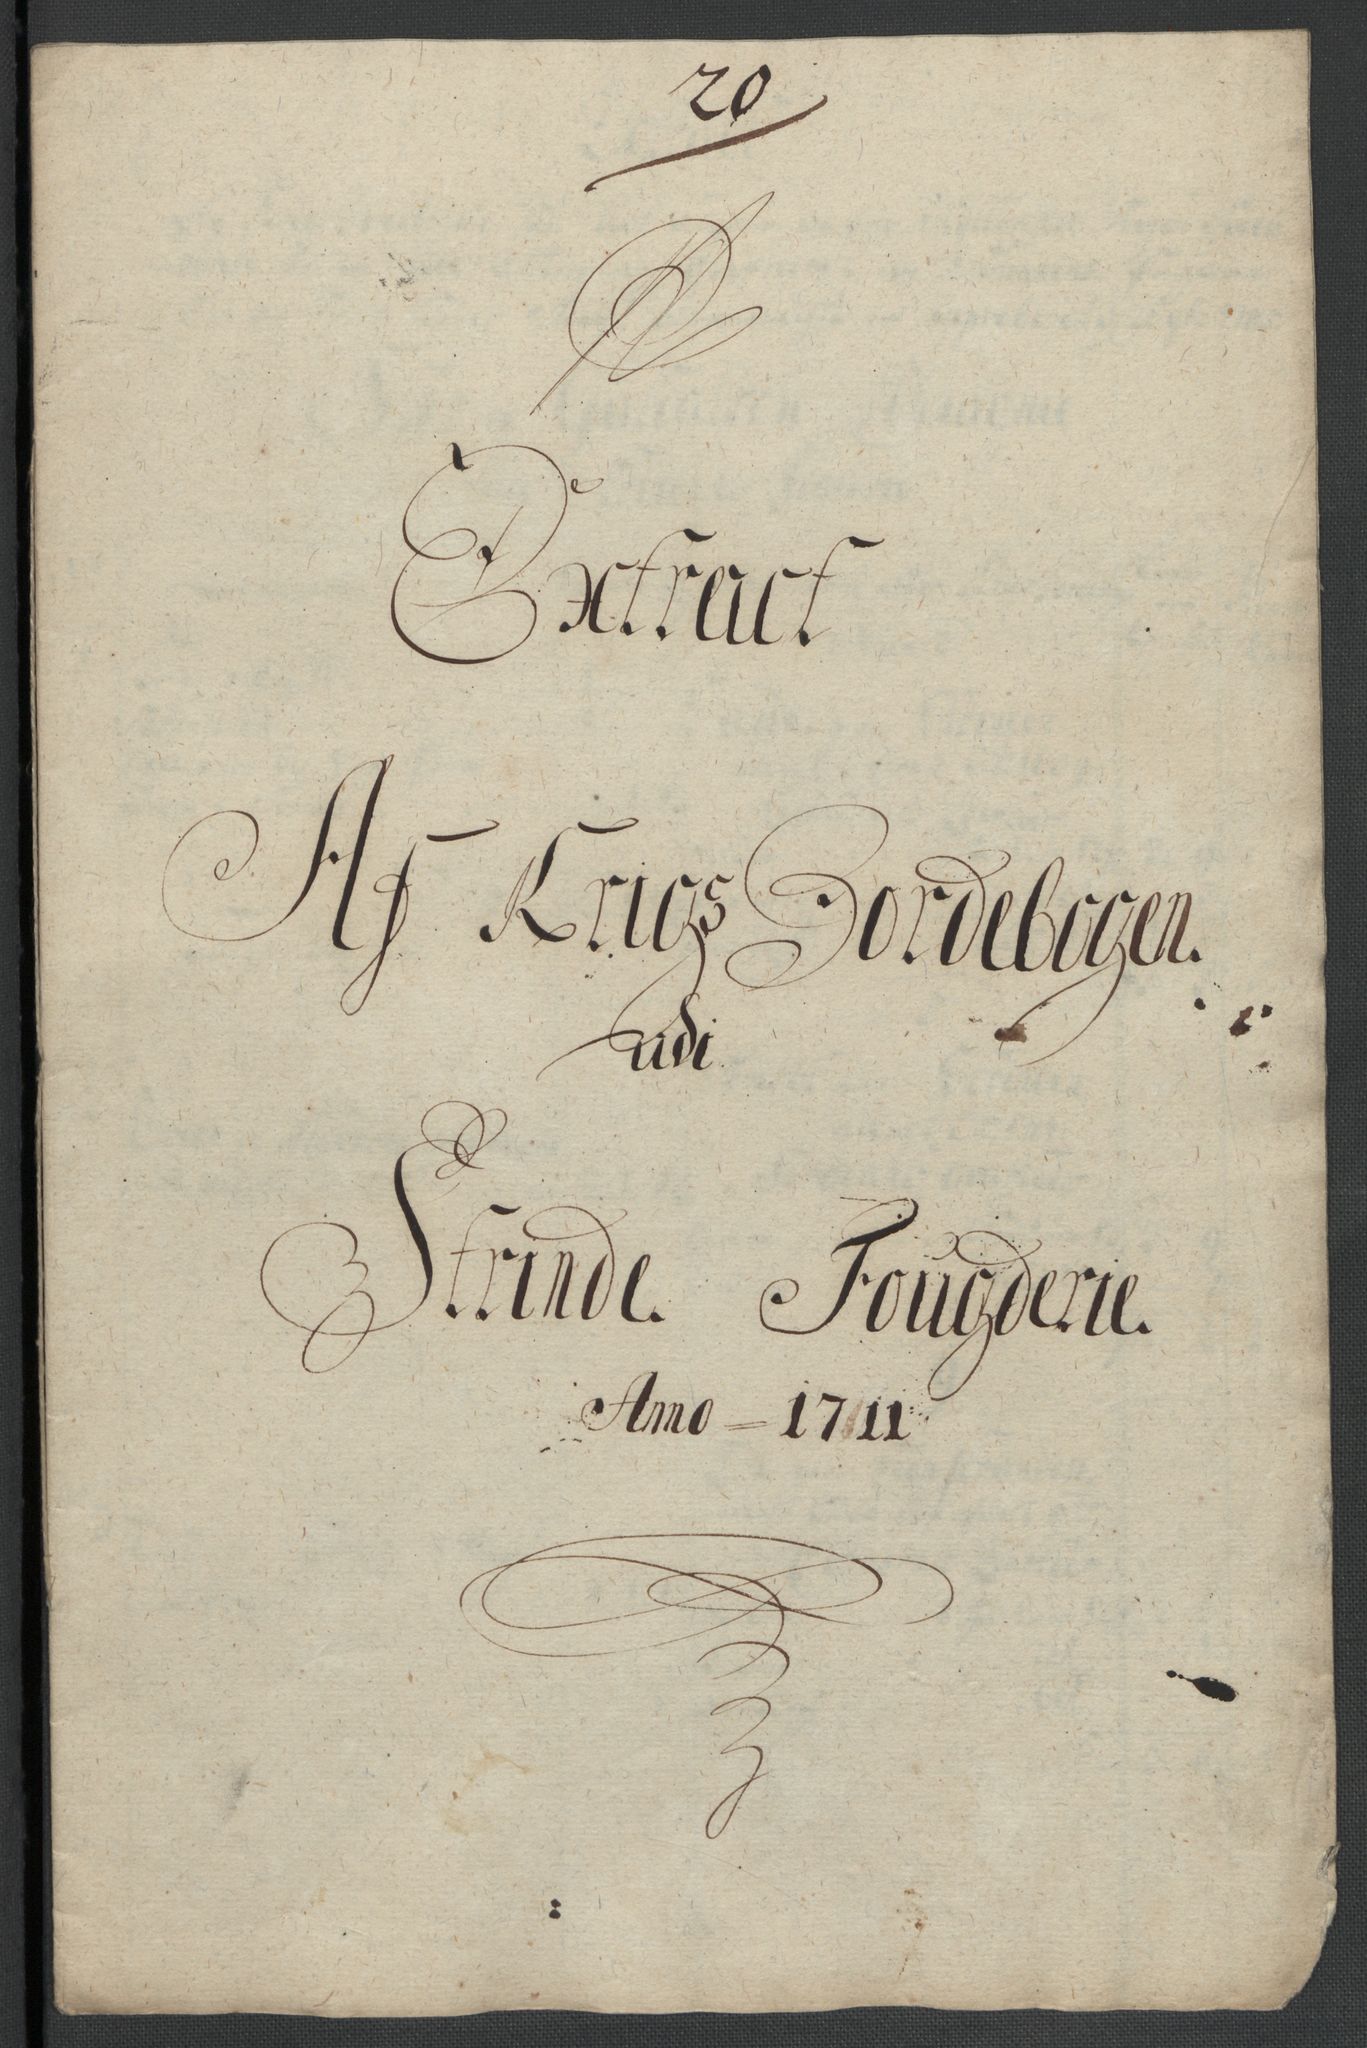 20
Extract
Af Krigs Jordebogen.
udi
Strinde. Fougderie.
Anno - 1711